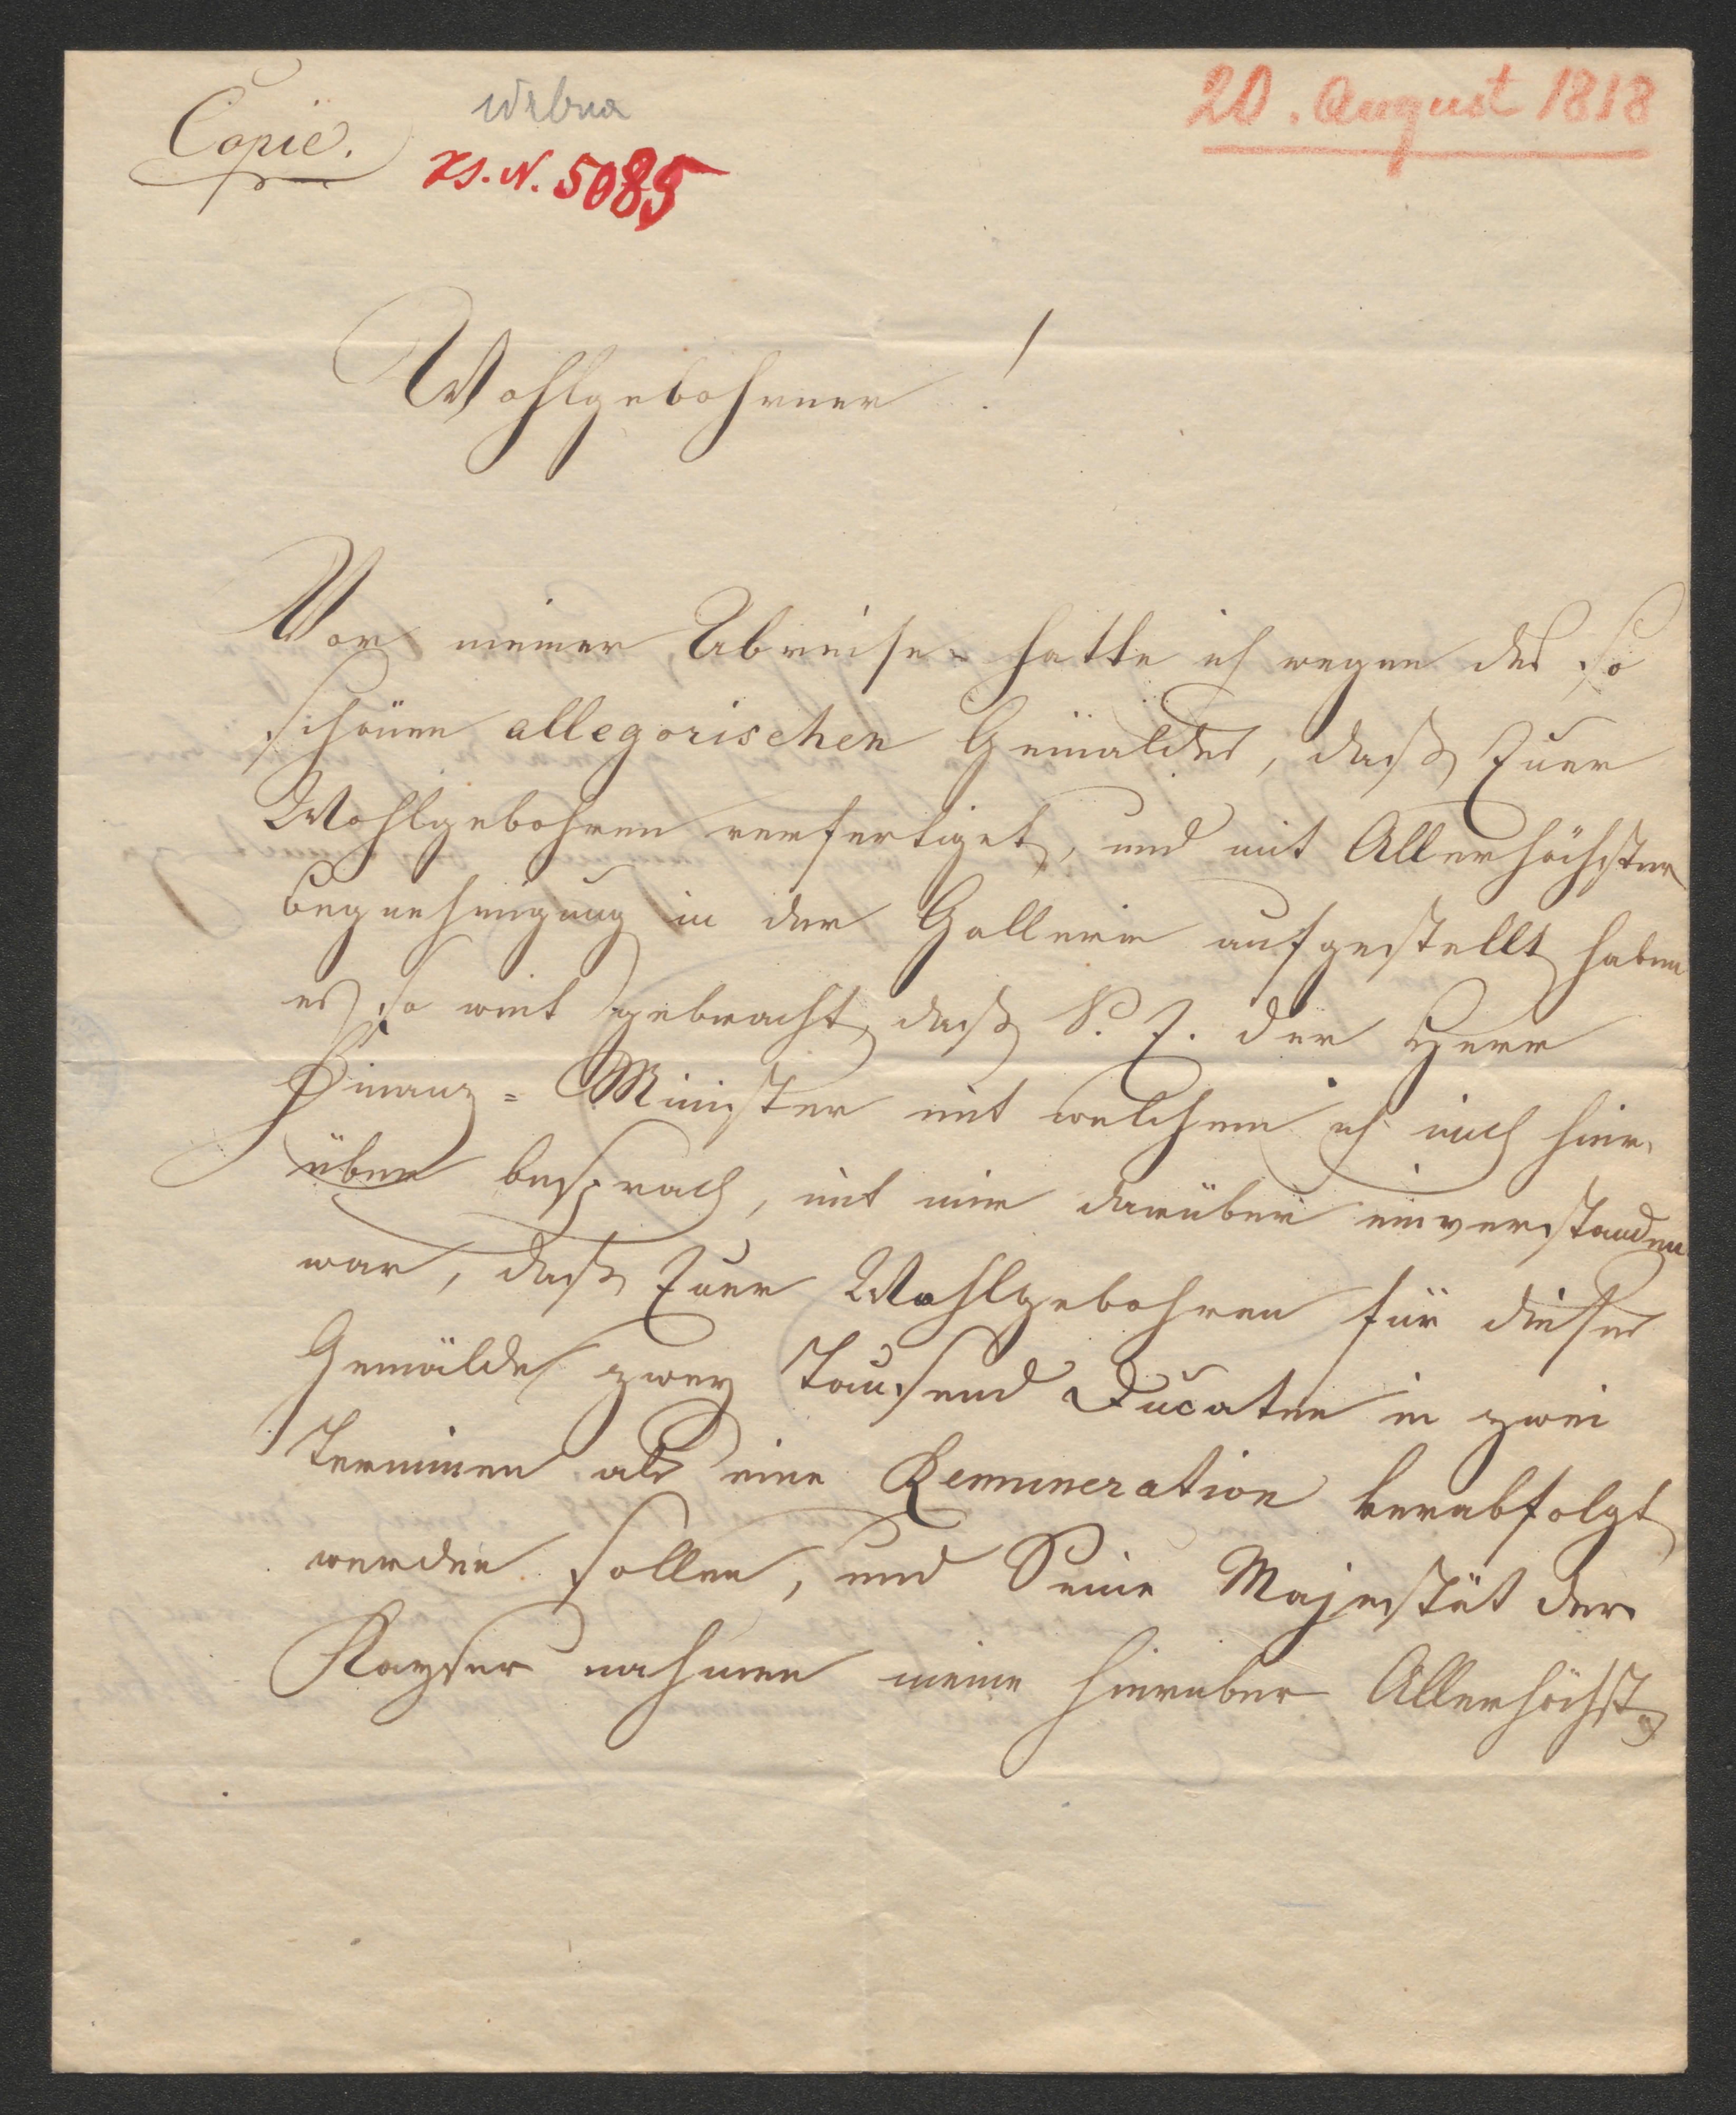 Copie.
Wrbna
Zs. N. 5085
20. August 1818
Wohlgebohrner!
Vor meiner Abreise hatte ich wegen des so
schönen allegorischen Gemäldes, daß Euer
Wohlgebohren verfertiget, und mit Allerhöchster
Begnehmigung in der Gallerie aufgestellt haben
es so weit gebracht, daß S. E. der Herr
Finanz-Minister mit welchem ich mich hier-
über besprach, mit mir darüber einverstanden
war, daß Euer Wohlgebohren für dieses
Gemälde zwey Tausend Ducaten in zwei
Terminen als eine Remuneration verabfolgt
werden sollen, und Seine Majestät der
Kayser nahmen meine hierüber Allerhöchst-